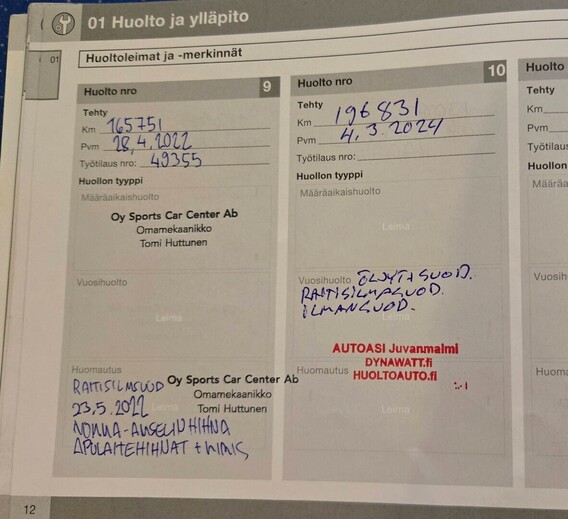 01 Huolto ja ylläpito
01
Huoltoleimat ja -merkinnät
Huolto nro 9
Tehty
Km 165751
Pvm 28,4.2022
Työtilaus nro: 49355
Huollon tyyppi
Määräaikaishuolto
Oy Sports Car Center Ab
Omamekaanikko
Tomi Huttunen
Vuosihuolto
Leima
Huomautus
RAITISILMSUOD
Oy Sports Car Center Ab
Omamekaanikko
Tomi Huttunen
23,5.2022
NOKKA-AKSELIN HIHNA
APULAITEHIHNAT +
Huolto nro 10
Tehty
Km 196831
Pvm 4.3.2024
Työtilaus nro:
Huollon tyyppi
Määräaikaishuolto
Leima
Vuosihuolto ÖLJYT+SUOD.
RAITISILMASUOD.
ILMANSUOD.
AUTOASI Juvanmalmi
DYNAWATT.fi
HUOLTOAUTO.fi
Huomautus
Leima
Huolto
Tehty
Km
Pvm
Työtilaus
Huollon
Määräa
Vuosih
Huoma
12